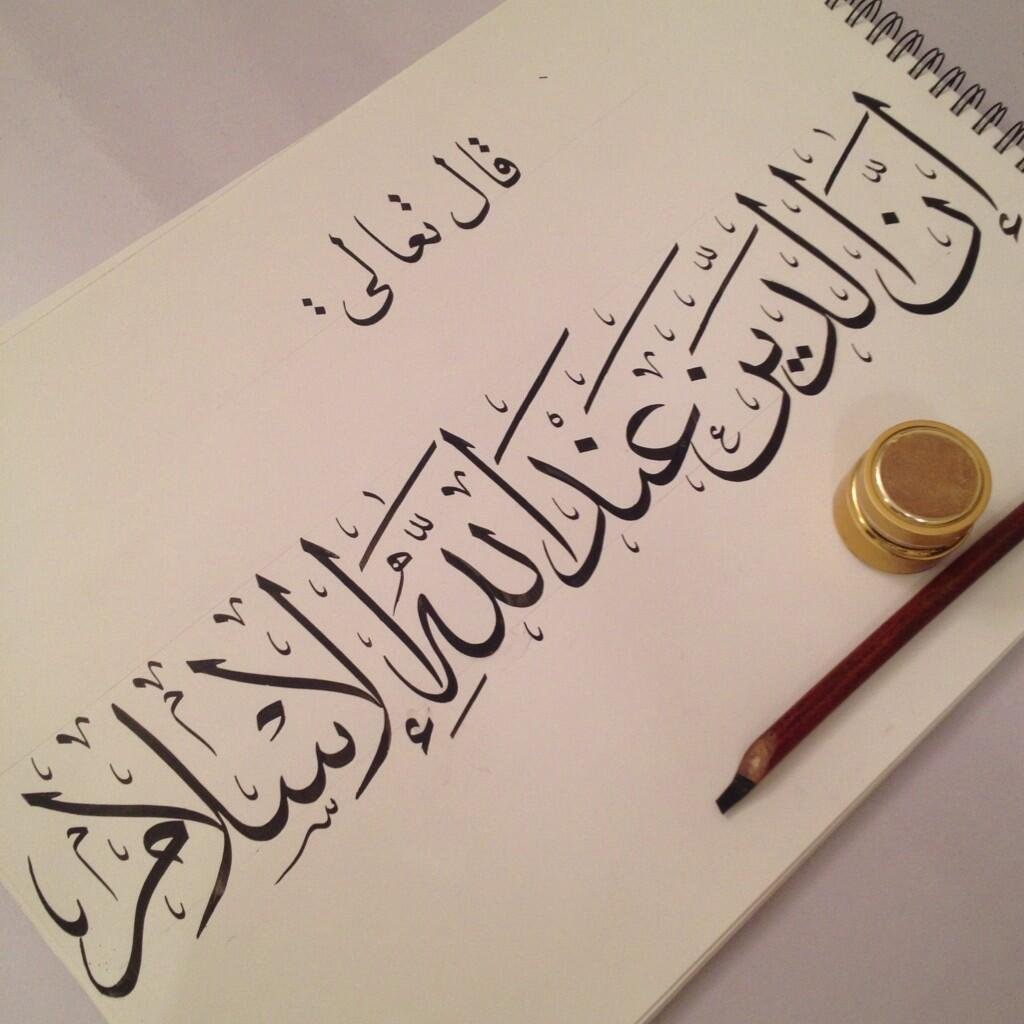 قال تعالى:
إِنَّ الدِّينَ عِنْدَ اللَّهِ الإِسْلَامُ